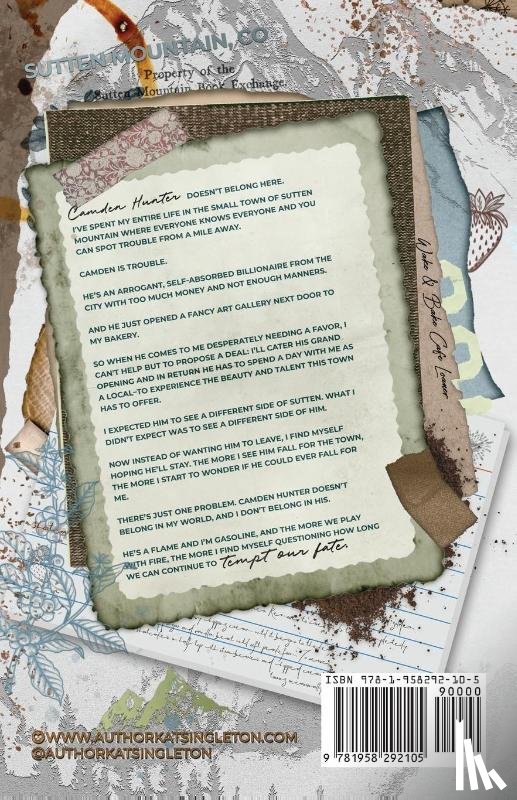 SUTTEN MOUNTAIN, CO
Property of the
Sutten Mountain Book Exchange.
Camden Hunter DOESN'T BELONG HERE.
I'VE SPENT MY ENTIRE LIFE IN THE SMALL TOWN OF SUTTEN
MOUNTAIN WHERE EVERYONE KNOWS EVERYONE AND YOU
CAN SPOT TROUBLE FROM A MILE AWAY.
CAMDEN IS TROUBLE.
HE'S AN ARROGANT, SELF-ABSORBED BILLIONAIRE FROM THE
CITY WITH TOO MUCH MONEY AND NOT ENOUGH MANNERS.
AND HE JUST OPENED A FANCY ART GALLERY NEXT DOOR TO
MY BAKERY.
SO WHEN HE COMES TO ME DESPERATELY NEEDING A FAVOR, I
CAN'T HELP BUT TO PROPOSE A DEAL: I'LL CATER HIS GRAND
OPENING AND IN RETURN HE HAS TO SPEND A DAY WITH ME AS
A LOCAL–TO EXPERIENCE THE BEAUTY AND TALENT THIS TOWN
HAS TO OFFER.
I EXPECTED HIM TO SEE A DIFFERENT SIDE OF SUTTEN. WHAT I
DIDN'T EXPECT WAS TO SEE A DIFFERENT SIDE OF HIM.
NOW INSTEAD OF WANTING HIM TO LEAVE, I FIND MYSELF
HOPING HE'LL STAY. THE MORE I SEE HIM FALL FOR THE TOWN,
THE MORE I START TO WONDER IF HE COULD EVER FALL FOR
ME.
THERE'S JUST ONE PROBLEM. CAMDEN HUNTER DOESN'T
BELONG IN MY WORLD, AND I DON'T BELONG IN HIS.
HE'S A FLAME AND I'M GASOLINE, AND THE MORE WE PLAY
WITH FIRE, THE MORE I FIND MYSELF QUESTIONING HOW LONG
WE CAN CONTINUE TO tempt our fate.
Wake & Bake Cafe Loaner
ISBN 978-1-958292-10-5
90000
9 781958 292105
WWW.AUTHORKATSINGLETON.COM
@AUTHORKATSINGLETON